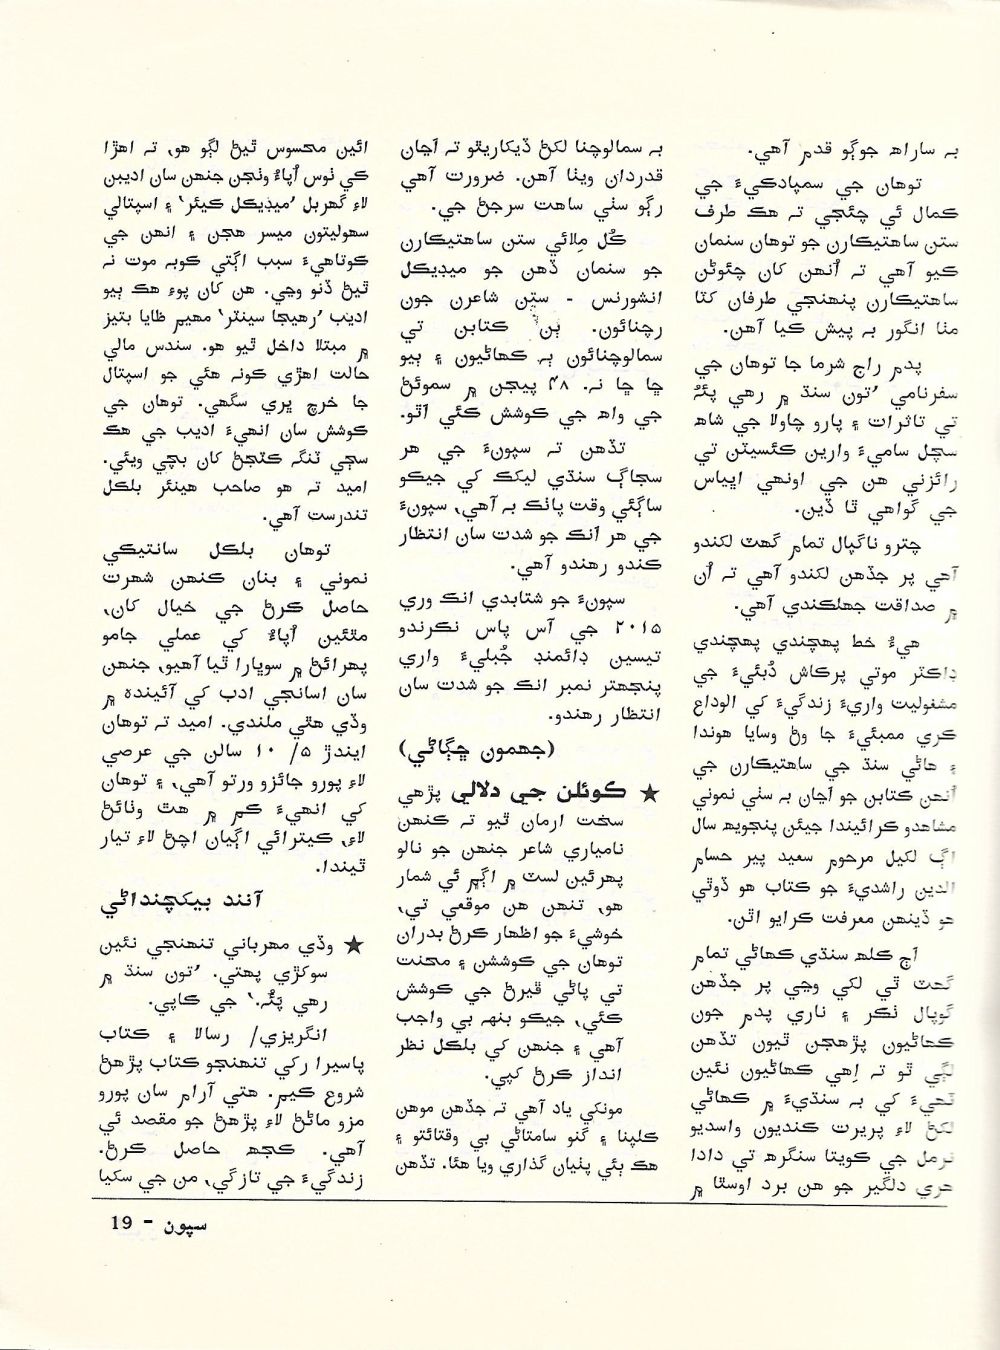 بہ ساراهہ جوڳو قدم آهي.
توهان جي سمپادڪيءَ جي
ڪمال ئي چئجي تہ هڪ طرف
ستن ساهتيڪارن جو توهان سنمان
ڪيو آهي تہ اُنهن کان چئوڻن
ساهتيڪارن پنهنجي طرفان کٽا
مٺا انگور بہ پيش ڪيا آهن.
پدم راڄ شرما جا توهان جي
سفرنامي ’تون سنڌ ۾ رهي پئہُ
تي تاثرات ۽ پارو چاولا جي شاهہ
سچل ساميءَ وارين ڪئسيٽن تي
رائزني هن جي اونهي اڀياس
جي گواهي ٿا ڏين.
چترو ناگپال تمام گهٽ لکندو
آهي پر جڏهن لکندو آهي تہ اُن
۾ صداقت جھلڪندي آهي.
هيءُ خط پهچندي پهچندي
ڊاڪٽر موتي پرڪاش دُبئيءَ جي
مشغوليت واريءَ زندگيءَ کي الوداع
ڪري ممبئيءَ جا وڻ وسايا هوندا
۽ هاڻي سنڌ جي ساهتيڪارن جي
اُنهن ڪتابن جو اڃان بہ سٺي نموني
مشاهدو ڪرائيندا جيئن پنجويهہ سال
اڳ لکيل مرحوم سعيد پير حسام
الدين راشديءَ جو ڪتاب هو ڏوٿي
هو ڏينهن معرفت ڪرايو اٿن.
اڄ ڪلهہ سنڌي ڪهاڻي تمام
گهٽ ٿي لکي وڃي پر جڏهن
گوپال ٺڪر ۽ ناري پدم جون
ڪهاڻيون پڙهجن ٿيون تڏهن
لڳي ٿو تہ اِهي ڪهاڻيون نئين
ٽهيءَ کي بہ سنڌيءَ ۾ ڪهاڻي
لکڻ لاءِ پريرت ڪنديون واسديو
نرمل جي ڪويتا سنگرهہ تي دادا
هري دلگير جو هن برد اوستا ۾
بہ سمالوچنا لکڻ ڏيکاريٿو تہ اڃان
قدردان ويٺا آهن. ضرورت آهي
رڳو سٺي ساهت سرجڻ جي.
ڪُل مِلائي ستن ساهتيڪارن
جو سنمان ڏهن جو ميڊيڪل
انشورنس - ستن شاعرن جون
رچنائون. ٻن ڪتابن تي
سمالوچنائون ٻہ ڪهاڻيون ۽ ٻيو
ڇا ڇا نہ. ۴۸ پيجن ۾ سموئڻ
جي واهہ جي ڪوشش ڪئي اٿو.
تڏهن تہ سپونءَ جي هر
سڄاڳ سنڌي ليکڪ کي جيڪو
ساڳئي وقت پاٺڪ بہ آهي، سپونءَ
جي هر آنڪ جو شدت سان انتظار
ڪندو رهندو آهي.
سپونءَ جو شتابدي انڪ وري
۲۰۱۵ جي آس پاس نڪرندو
تيسين ڊائمنڊ جُبليءَ واري
پنجهتر نمبر انڪ جو شدت سان
انتظار رهندو.
(جهمون ڇڳاڻي)
★ ڪوئلن جي دلالي پڙهي
سخت ارمان ٿيو تہ ڪنهن
نامياري شاعر جنهن جو نالو
پهرئين لسٽ ۾ اڳم ئي شمار
هو، تنهن هن موقعي تي،
خوشيءَ جو اظهار ڪرڻ بدران
توهان جي ڪوششن ۽ محنت
تي پاڻي ڦيرڻ جي ڪوشش
ڪئي، جيڪو بنهہ بي واجب
آهي ۽ جنهن کي بلڪل نظر
انداز ڪرڻ کپي.
مونکي ياد آهي تہ جڏهن موهن
ڪلپنا ۽ گنو سامتاڻي بي وقتائتو ۽
هڪ ٻئي پٺيان گذاري ويا هئا. تڏهن
ائين محسوس ٿيڻ لڳو هو، تہ اهڙا
کي ٺوس اُپاءُ وٺجن جنهن سان اديبن
لاءِ گهربل ’ميڊيڪل ڪيئر‘ ۽ اسپتالي
سهوليتون ميسر هجن ۽ انهن جي
ڪوتاهيءَ سبب اڳتي ڪوبہ موت نہ
ٿيڻ ڏنو وڃي. هن کان پوءِ هڪ ٻيو
اديب ’رهيجا سينٽر‘ مهيم ظايا بتيز
۾ مبتلا داخل ٿيو هو. سندس مالي
حالت اهڙي ڪونہ هئي جو اسپتال
جا خرچ ڀري سگهي. توهان جي
ڪوشش سان انهيءَ اديب جي هڪ
سڄي ٽنگ ڪٽجڻ کان بچي ويئي.
اميد تہ هو صاحب هينئر بلڪل
تندرست آهي.
توهان بلڪل سانتيڪي
نموني ۽ بنان ڪنهن شهرت
حاصل ڪرڻ جي خيال کان،
مٿئين اُپاءُ کي عملي جامو
پهرائڻ ۾ سوڀارا ٿيا آهيو، جنهن
سان اسانجي ادب کي آئيندہ ۾
وڏي هٿي ملندي. اميد تہ توهان
ايندڙ ۵/ ۱۰ سالن جي عرصي
لاءِ پورو جائزو ورتو آهي، ۽ توهان
کي انهيءَ ڪم ۾ هٿ ونائڻ
لاءِ، ڪيترائي اڳيان اچڻ لاءِ تيار
ٿيندا.
آنند ٻيڪچنداڻي
★ وڏي مهرباني تنهنجي نئين
سوکڙي پهتي. ’تون سنڌ ۾
رهي پَئہُ.‘ جي ڪاپي.
انگريزي/ رسالا ۽ ڪتاب
پاسيرا رکي تنهنجو ڪتاب پڙهڻ
شروع ڪيم. هتي آرام سان پورو
مزو ماڻڻ لاءِ پڙهڻ جو مقصد ئي
آهي. ڪجهہ حاصل ڪرڻ.
زندگيءَ جي تازگي، من جي سکيا
سپون - 19